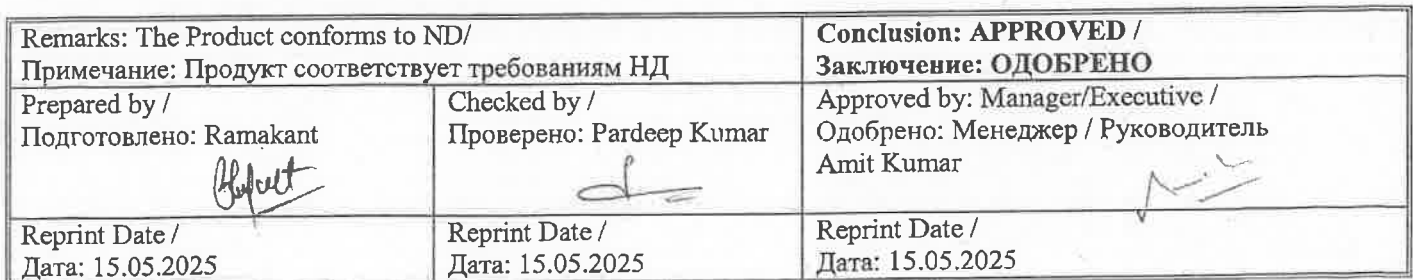 Remarks: The Product conforms to ND/
Примечание: Продукт соответствует требованиям НД
Conclusion: APPROVED /
Заключение: ОДОБРЕНО
Prepared by /
Подготовлено: Ramakant
Checked by /
Проверено: Pardeep Kumar
Approved by: Manager/Executive /
Одобрено: Менеджер / Руководитель
Amit Kumar
Reprint Date /
Дата: 15.05.2025
Reprint Date /
Дата: 15.05.2025
Reprint Date /
Дата: 15.05.2025